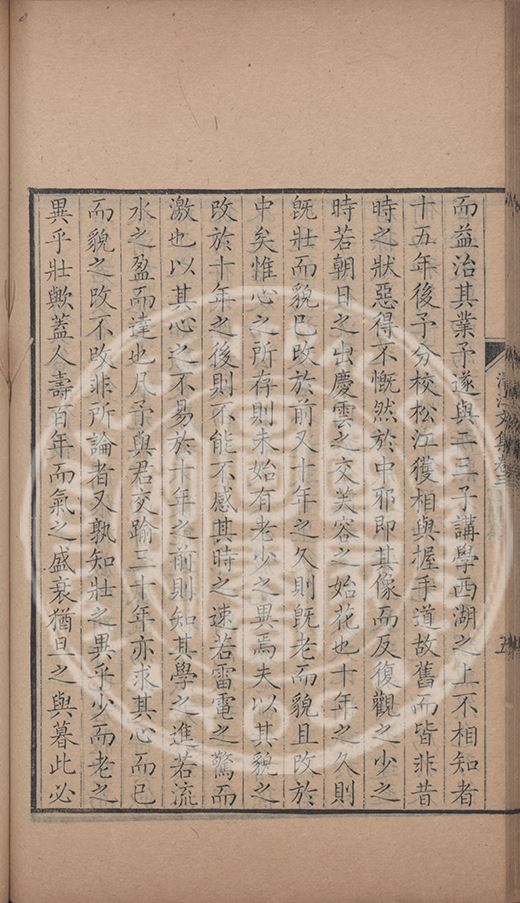 而益治其業予遂與二三子講學西湖之上不相知者
十五年後予分校松江獲相與握手道故舊而皆非昔
時之狀惡得不慨然於中邪即其像而反復觀之少之
時若朝日之出慶雲之交芙容之始花也十年之久則
既壯而貌已改於前又十年之久則既老而貌且改於
中矣惟心之所存則未始有老少之異焉夫以其貌之
改於十年之後則不能不感其時之速若雷電之驚而
激也以其心之不易於十年之前則知其學之進若流
水之盈而達也凡予與君交踰三十年亦求其心而已
而貌之改不改非所論者又孰知壯之異乎少而老之
異乎壯歟蓋人壽百年而氣之盛衰猶旦之與暮此必